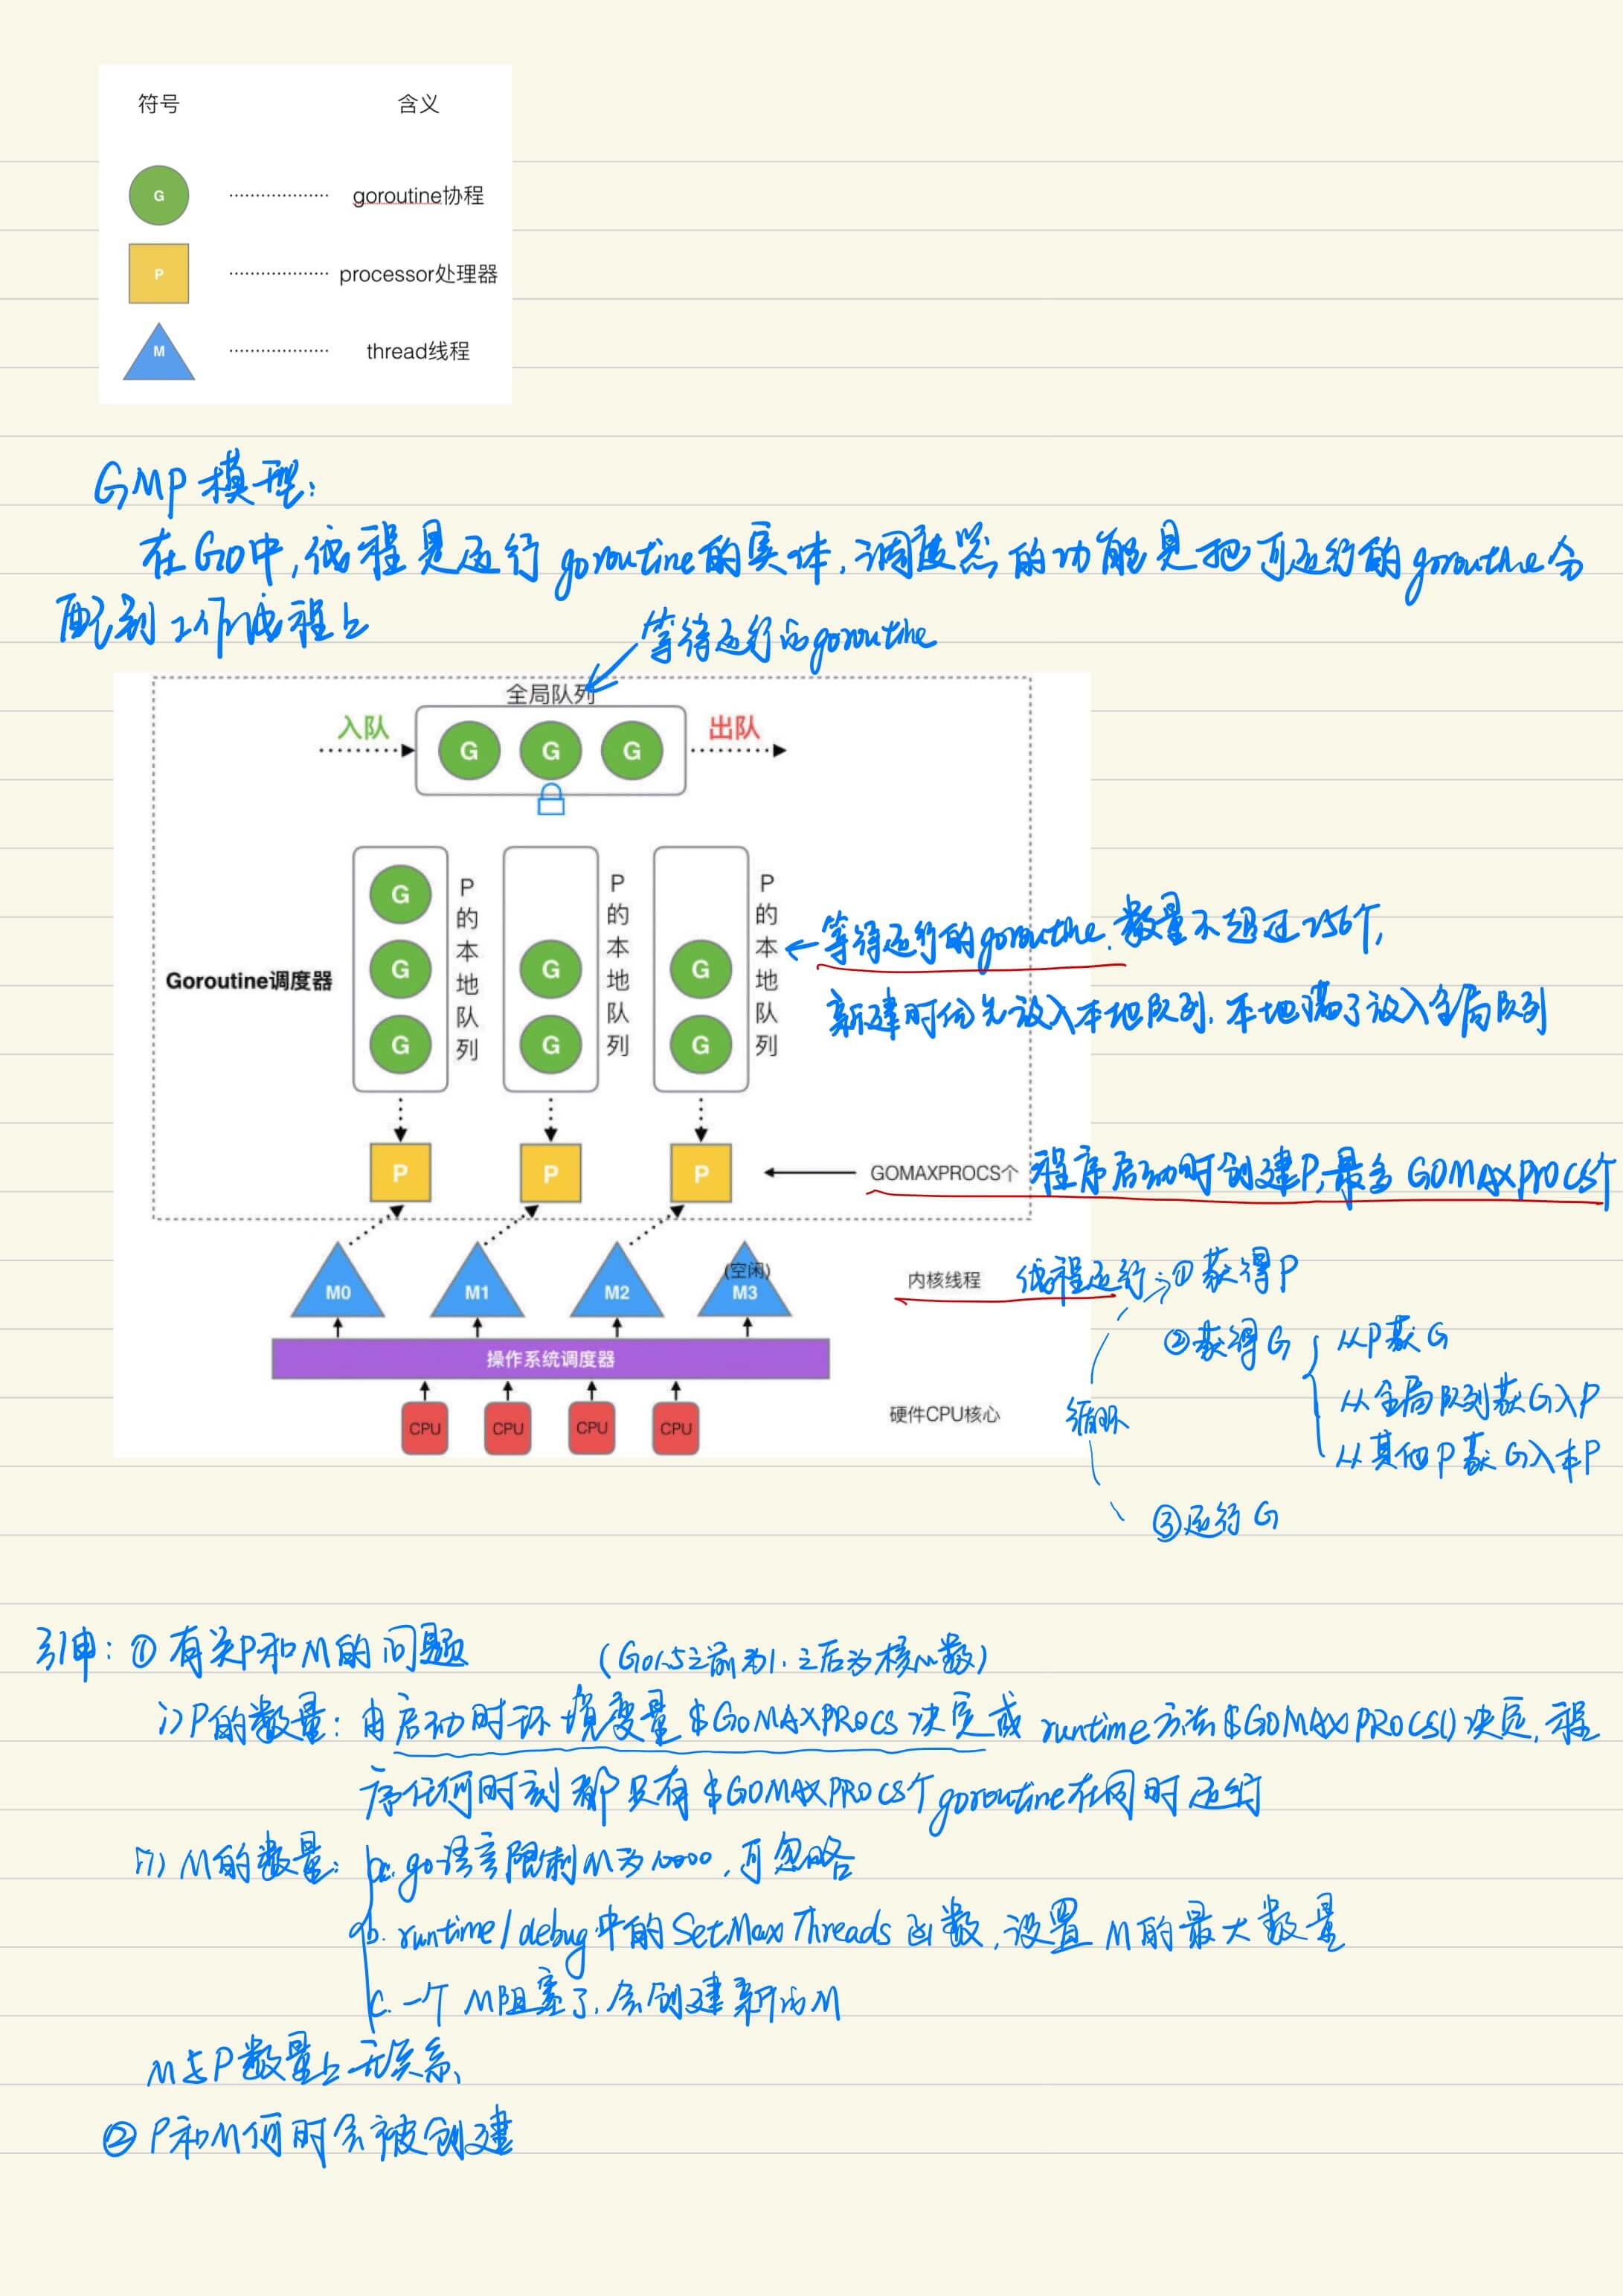 符号 含义
G goroutine协程
P processor处理器
M thread线程
GMP模型:
在Go中,线程是运行goroutine的实体,调度器的功能是把可运行的goroutine分
配到工作线程上
等待运行的goroutine
全局队列
入队 G G G 出队
G P的本地队列 P的本地队列 P的本地队列
G G G
G G G
Goroutine调度器
等待运行的goroutine.数量不超过256个,
新建时优先放入本地队列.本地满了放入全局队列
P P P GOMAXPROCS个 程序启动时创建P,最多GOMAXPROCS个
M0 M1 M2 (空闲) M3 内核线程 线程运行:①获得P
②获得G 从P获G
从全局队列获G入P
从其他P获G入本P
循环
③运行G
操作系统调度器
CPU CPU CPU CPU 硬件CPU核心
引申:①有关P和M的问题 (Go1.5之前为1.之后为核心数)
i)P的数量:由启动时环境变量$GOMAXPROCS决定或runtime方法$GOMAXPROCS()决定,程
序任何时刻都只有$GOMAXPROCS个goroutine在同时运行
ii)M的数量: a.go语言限制M为10000,可忽略
b.runtime/debug中的SetMaxThreads函数,设置M的最大数量
c.一个M阻塞了,会创建新的M
M与P数量上无关系、
②P和M何时会被创建